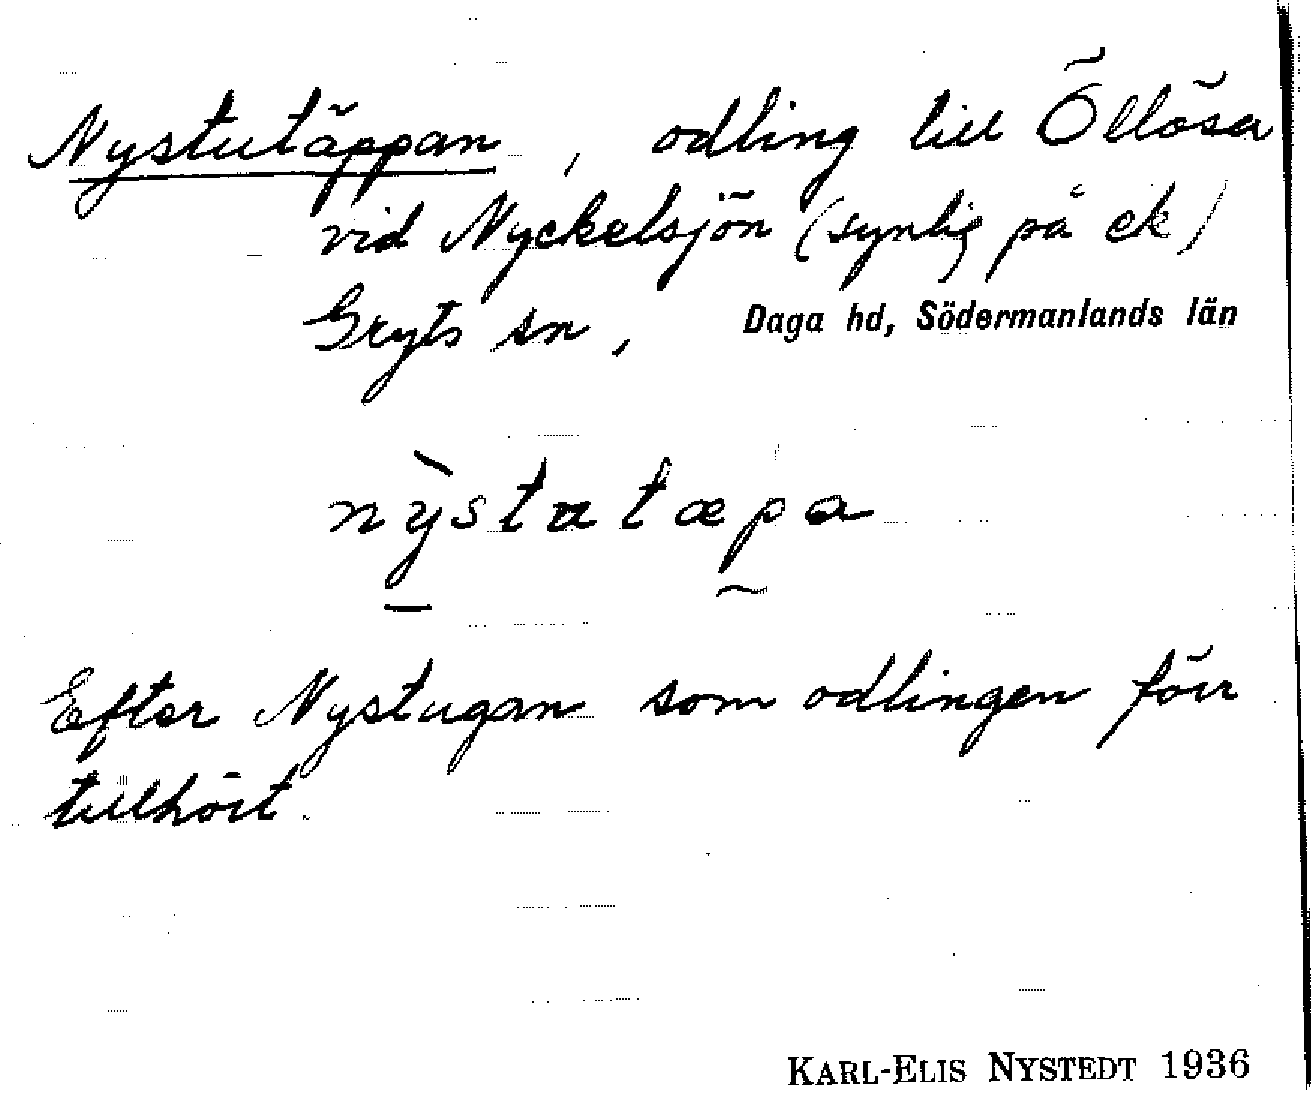 Nystutäppan, odling till Öllösa
vid Nyckelsjön (synlig på ek)
Gryts sn, Daga hd, Södermanlands län
nỳstutæpa
Efter Nystugan som odlingen förr
tillhört.
KARL-ELIS NYSTEDT 1936